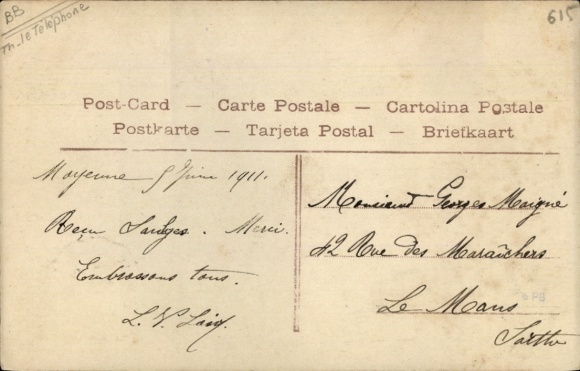 BB
Th_le Telephone
615
Post-Card — Carte Postale — Cartolina Postale
Postkarte — Tarjeta Postal — Briefkaart
Mayenne 5 Juin 1911.
Reçu Saulges. Merci.
Embrassons tous.
L. V.
Monsieur Georges Maigné
42 Rue des Maraîchers
Le Mans
Sarthe